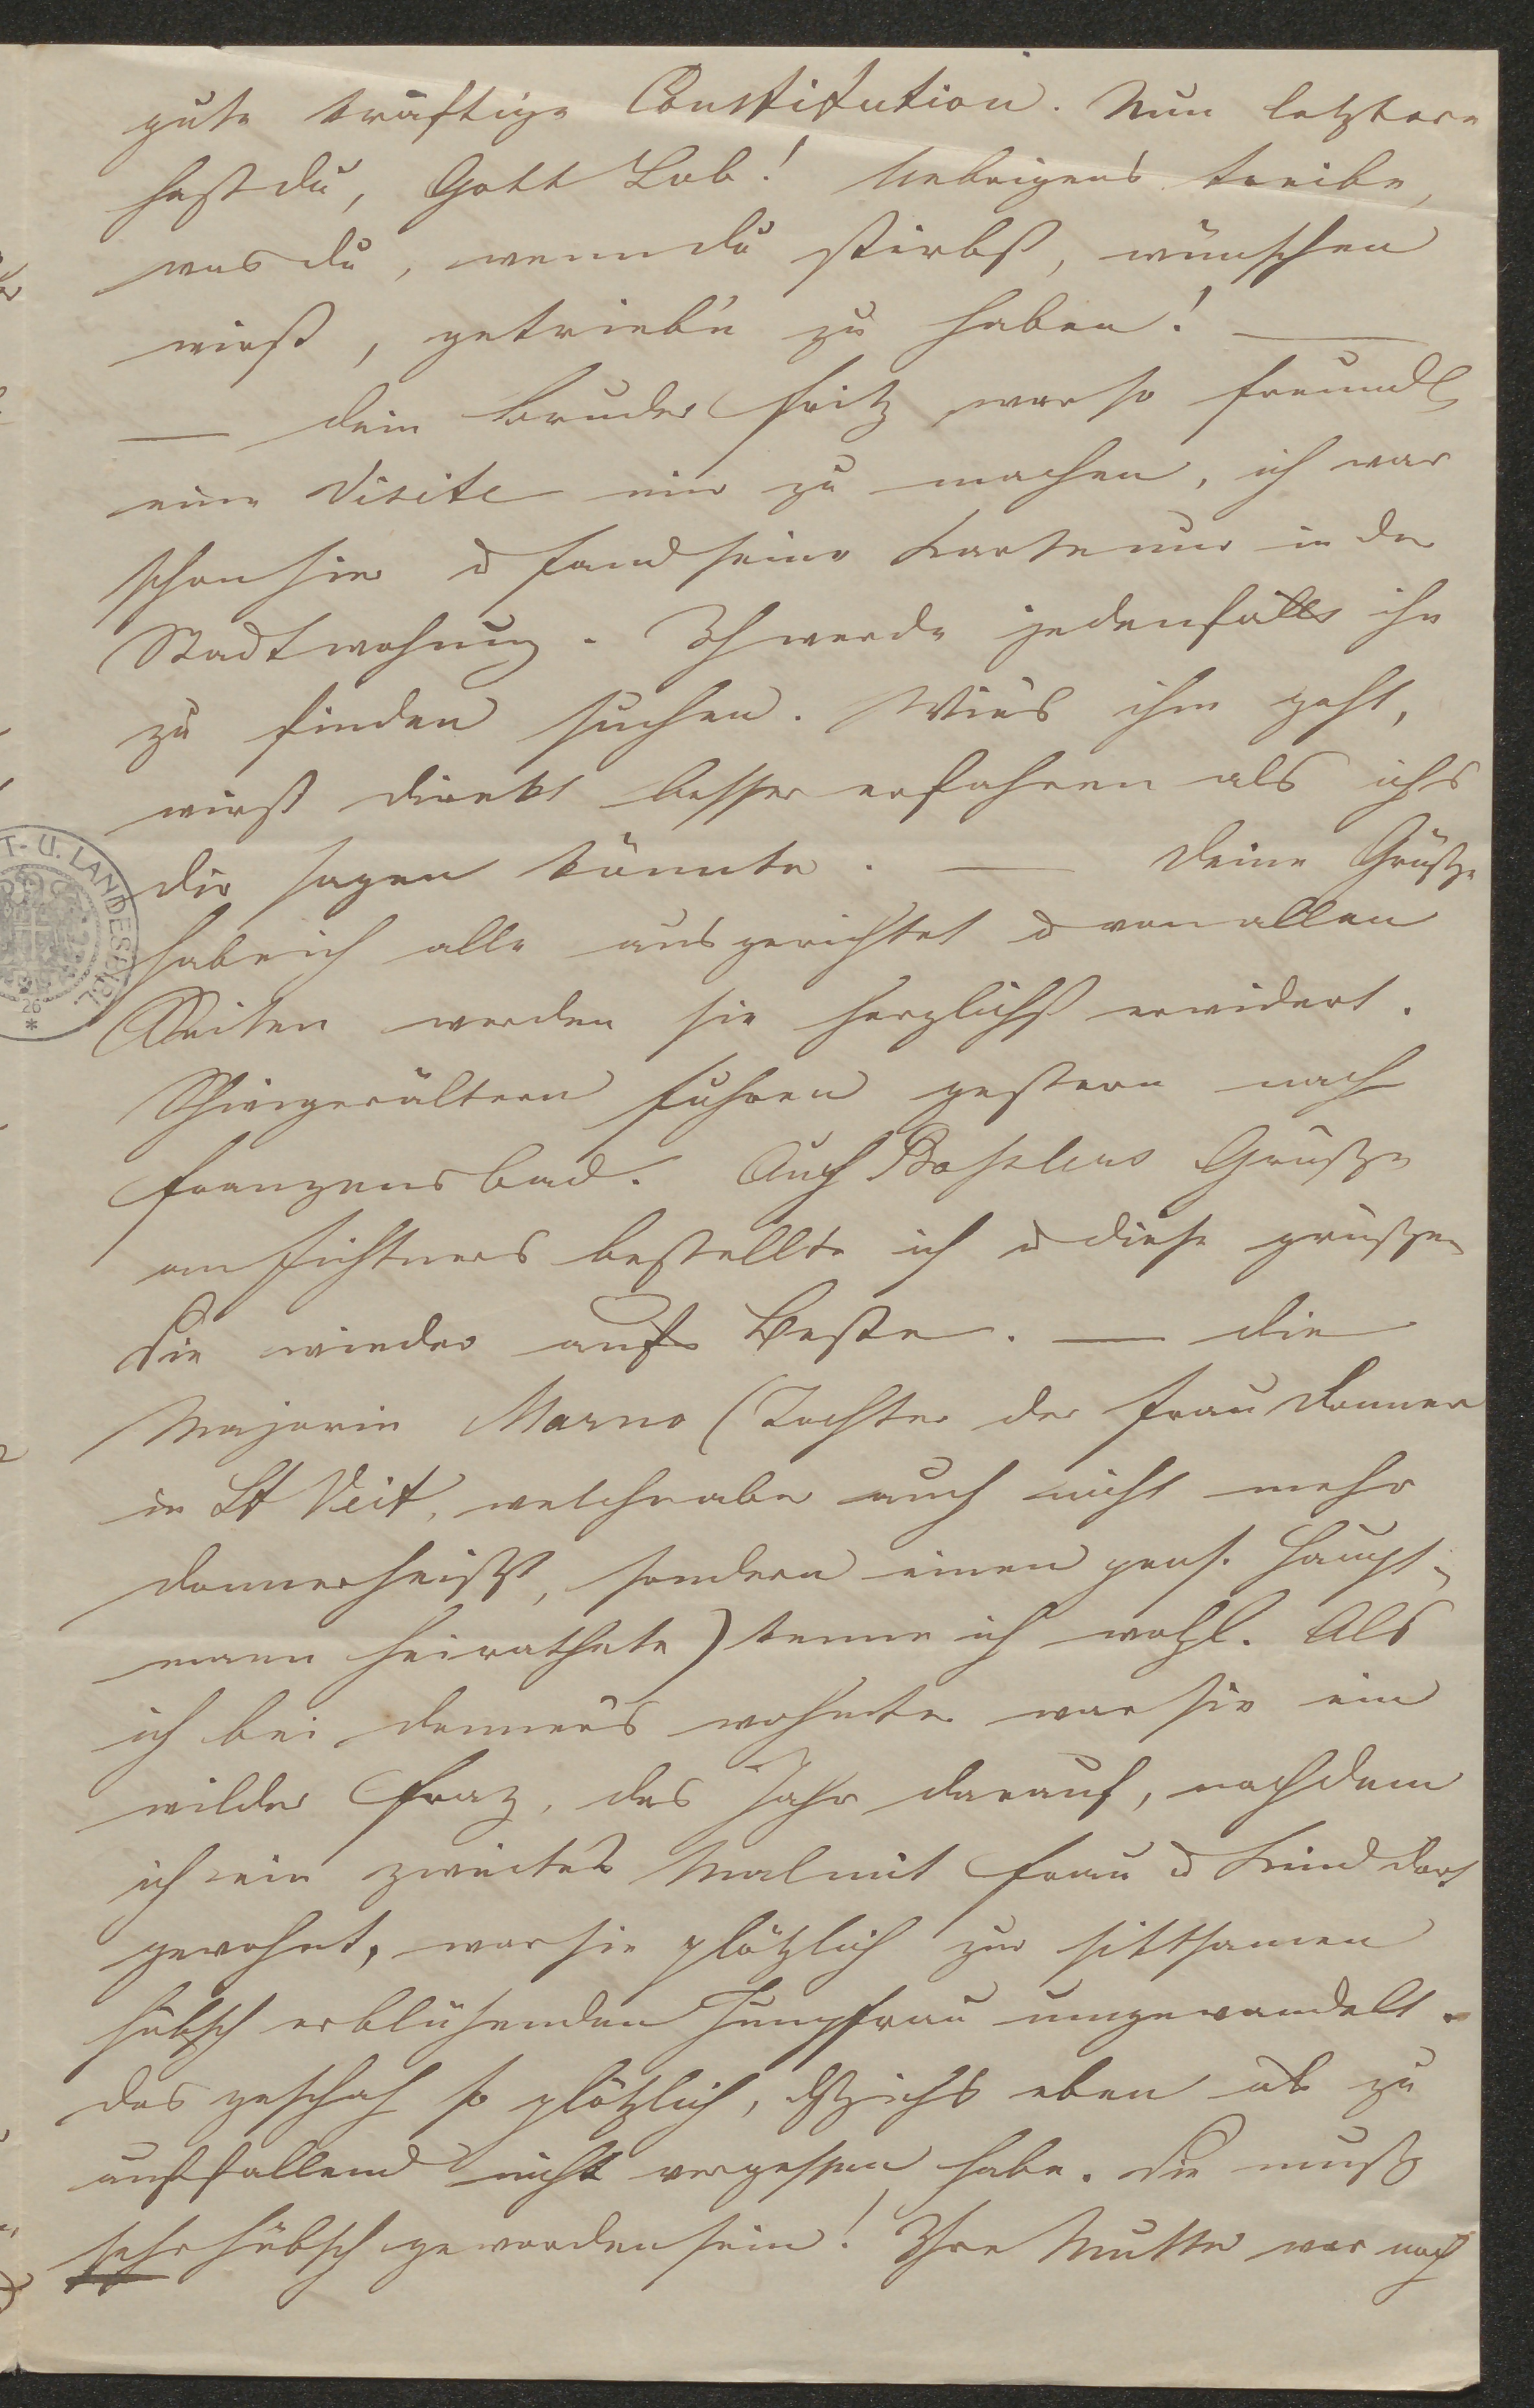 gute kräftige Constitution. Nun letztere
hast du, Gott Lob! Uebrigens treibe,
was du, wenn du stirbst, wünschen
wirst, getrieb'n zu haben! —
— Dein Bruder Fritz war so freundl
eine Visite mir zu machen, ich war
schon hier u fand seine Karte nur in der
Stadtwohnung. Ich werde jedenfalls ihn
zu finden suchen. Wie's ihm geht,
wirst direkt besser erfahren als ichs
dir sagen könnte. — Deine Grüße
habe ich alle ausgerichtet u von allen
Seiten werden sie herzlichst erwidert.
fuhren gestern nach
Franzensbad. Auch Grüße
an Fichtners bestellte ich u diese grüßen
Sie wieder aufs Beste. — Die
Majorin Marno (Tochter der Frau Donner
in St Veit, welche aber auch nicht mehr
Donner heißt, sondern einen pens. Haupt-
mann heirathete) kenne ich wohl. Als
ich bei Donner's wohnte war sie ein
wilder Fraz, das Jahr darauf, nachdem
ich ein zweites Mal mit Frau u Kind dort
gewohnt, war sie plötzlich zur sittsamen
hübsch erblühenden Jungfrau umgewandelt.
Das geschah so plötzlich, dß ichs eben als zu
auffallend nicht vergessen habe. Sie muß
sehr hübsch geworden sein! Ihre Mutter war noch
T- U. LANDESBIBL.
26
*